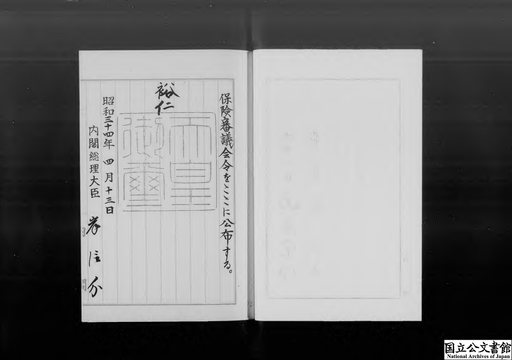 保険審議会令をここに公布する。
裕仁
天皇御璽
昭和三十四年四月十三日
内閣総理大臣 岸信介
国立公文書館
National Archives of Japan